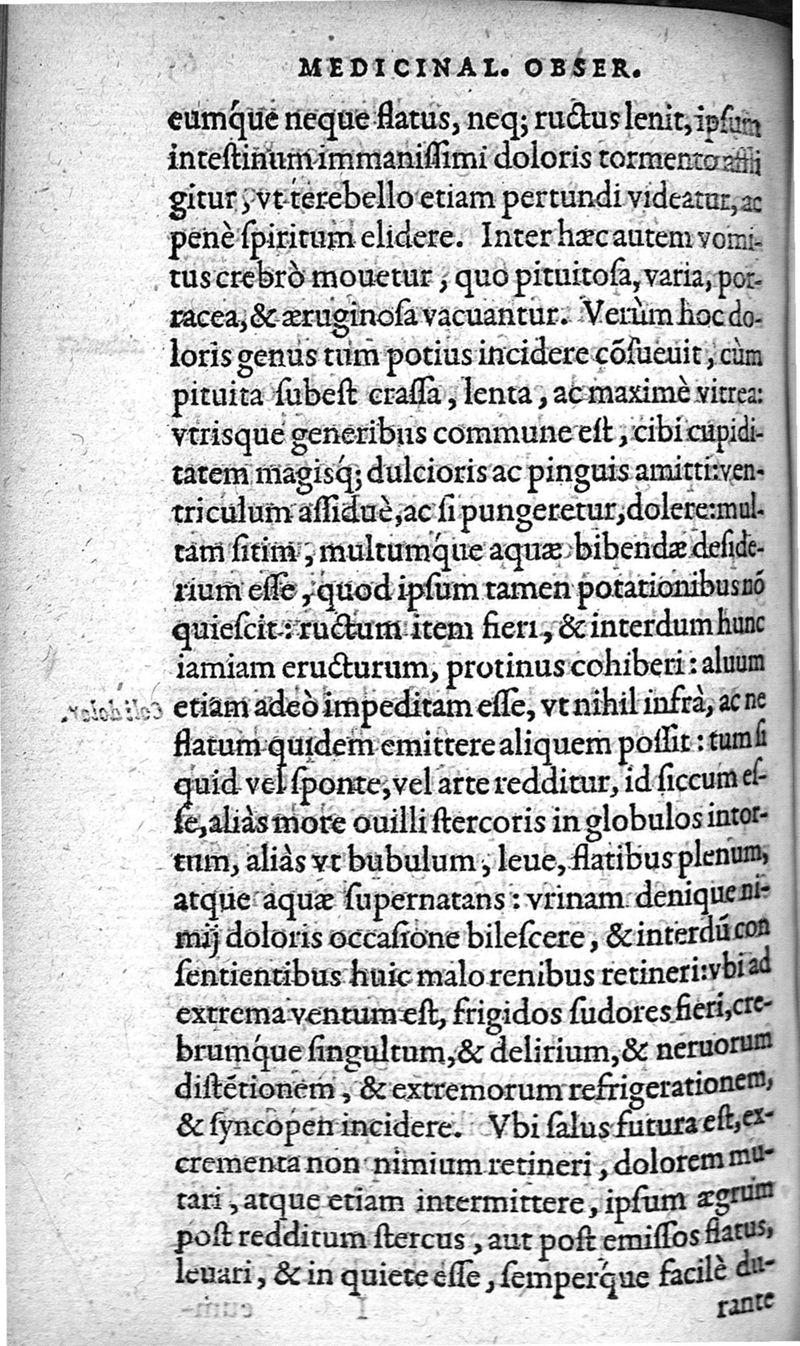 MEDICINAL. OBSER.
eumq́ue neque flatus, neq; ructus lenit, ipſum
inteſtinum immaniſſimi doloris tormento affli
gitur, vt terebello etiam pertundi videatur, ac
penè ſpiritum elidere. Inter hæc autem vomi-
tus crebrò mouetur, quo pituitoſa, varia, por-
racea, & æruginoſa vacuantur. Verùm hoc do-
loris genus tum potius incidere cõſueuit, cùm
pituita ſubeſt craſſa, lenta, ac maximè vitrea:
vtrisque generibus commune eſt, cibi cupidi-
tatem magisq; dulcioris ac pinguis amitti: ven-
triculum aſſiduè, ac ſi pungeretur, dolere: mul-
tam ſitim, multumq́ue aquæ bibendæ deſide-
rium eſſe, quod ipſum tamen potationibus nõ
quieſcit: ructum item fieri, & interdum hunc
iamiam eructurum, protinus cohiberi: aluum
etiam adeò impeditam eſſe, vt nihil infrà, ac ne
flatum quidem emittere aliquem poſſit: tum ſi
quid vel ſponte, vel arte redditur, id ſiccum eſ-
ſe, aliàs more ouilli ſtercoris in globulos intor-
tum, aliàs vt bubulum, leue, flatibus plenum,
atque aquæ ſupernatans: vrinam denique ni-
mij doloris occaſione bileſcere, & interdũ con
ſentientibus huic malo renibus retineri: vbi ad
extrema ventum eſt, frigidos ſudores fieri, cre-
brumq́ue ſingultum, & delirium, & neruorum
diſtẽtionem, & extremorum refrigerationem,
& ſyncopen incidere. Vbi ſalus futura eſt, ex-
crementa non nimium retineri, dolorem mu-
tari, atque etiam intermittere, ipſum ægrum
poſt redditum ſtercus, aut poſt emiſſos flatus,
leuari, & in quiete eſſe, ſemperq́ue facilè du-
rante